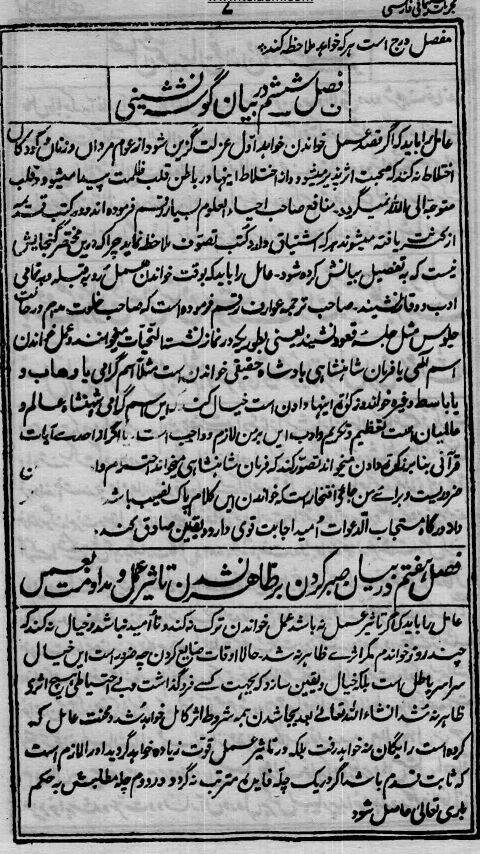 مفصل درج است هر که خواهد ملاحظه کند
فصل ششم در بیان گوشه نشینی
عامل را باید که اگر قصد عمل خواندن خواهد اول عزلت گزین شود از عوام مردان و زنان و کودکان
اختلاط نه کند که صحبت اثر پذیر میشود و از اختلاط اینها در باطن قلب ظلمت پیدا میشود و قلب
متوجه الی الله نمیگردد منافع صاحب احیاء العلوم بسیار رقم فرموده اند و در کتب
یافته میشوند هر که اشتیاق دارد کتب تصوف ملاحظه نماید چرا که درین مختصر گنجایش
نیست که به تفصیل بیانش کرده شود۔ عامل را باید که بوقت خواندن عمل رو بقبله به تمامی
ادب و وقار نشیند۔ صاحب ترجمه عوارف رقم فرموده است که صاحب خلوت مدام در حالت
جلوس مثل جلسه قعود نشیند یعنی بطوریکه در نماز نشسته التحیات میخوانند و عمل خواندن
اسم الهی یا فرمان شاهنشاهی بادشاه حقیقی خواندن است مثلاً اسم گرامی یا وهاب و
یا باسط وغیره خوانده زکوة اینها دادن است خیال کند این اسم گرامی شهنشاه عالم و
عالمیان است تعظیم و تکریم و ادب این بر من لازم و واجب است۔ یا اگر از احدے آیات
قرآنی بنا بر زکوة دادن میخواند تصور کند که فرمان شاهنشاهی میخوانم احترام
ضروریست و برائے من جائے افتخار است که خواندن این کلام پاک نصیب باشد
و از درگاه مستجاب الدعوات امید اجابت قوی دارد و یقین صادق کند۔
فصل هفتم در بیان صبر کردن بر ظاهر نشدن تاثیر عمل و مداومت
عامل را باید که اگر تاثیر عمل نه باشد عمل خواندن ترک نه کند و نا امید نباشد و خیال نه کند که
چند روز خواندم مگر اثرے ظاهر نه شد۔ حالا اوقات ضایع کردن چه ضرور است این خیال
سراسر باطل است بلکه خیال و یقین سازد که بجهت کسے فروگذاشت و بے احتیاطی هیچ اثرے
ظاهر نه شد انشاء الله تعالیٰ بعد بجا شدن همه شروط اثر کامل خواهد شد و محنت عامل که
کرده است رائگان نه خواهد رفت بلکه در تاثیر عمل قوت زیاده خواهد گردید اورا لازم است
که ثابت قدم باشد اگر در یک چله فایده مترتب نه گردد در دوم چله مطلبش به حکم
باری تعالیٰ حاصل شود